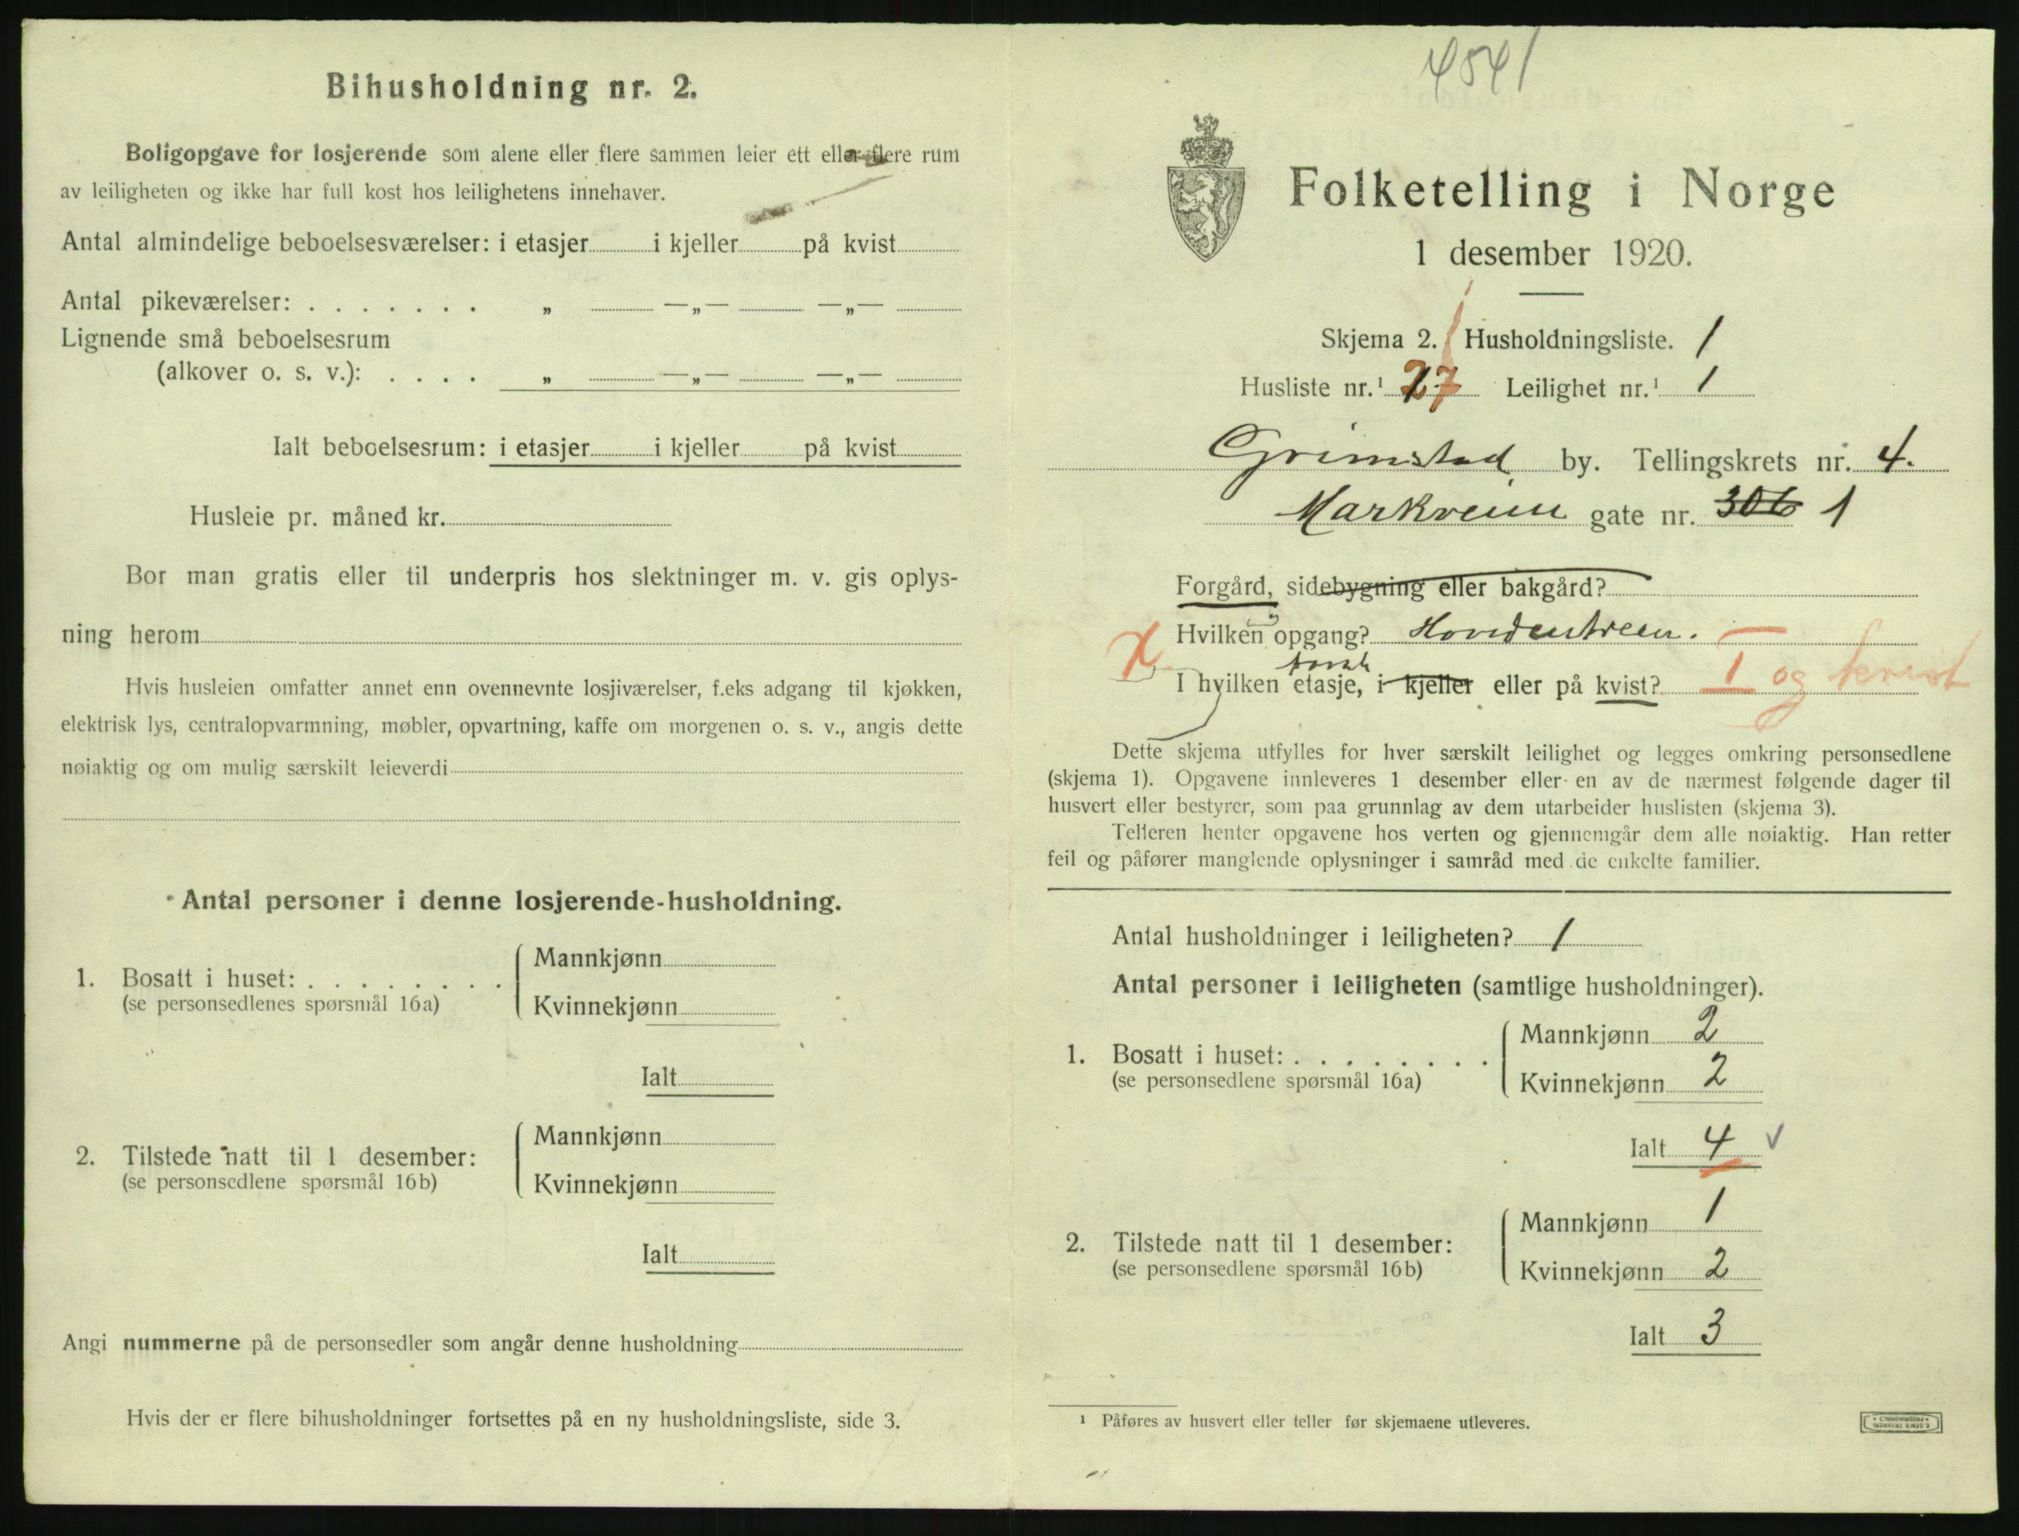 Bihusholdning nr. 2.
Boligopgave for losjerende som alene eller flere sammen leier ett eller flere rum
av leiligheten og ikke har full kost hos leilighetens innehaver.
Antal almindelige beboelsesværelser: i etasjer i kjeller på kvist
Antal pikeværelser: . . . . . . . „ —„— —„—
Lignende små beboelsesrum
(alkover o. s. v.): . . . . „ —„— —„—
Ialt beboelsesrum: i etasjer i kjeller på kvist
Husleie pr. måned kr.
Bor man gratis eller til underpris hos slektninger m. v. gis oplys-
ning herom
Hvis husleien omfatter annet enn ovennevnte losjiværelser, f.eks adgang til kjøkken,
elektrisk lys, centralopvarmning, møbler, opvartning, kaffe om morgenen o. s. v., angis dette
nøiaktig og om mulig særskilt leieverdi
Antal personer i denne losjerende-husholdning.
1. Bosatt i huset: . . . . . . . . Mannkjønn
(se personsedlenes spørsmål 16a) Kvinnekjønn
Ialt
2. Tilstede natt til 1 desember: Mannkjønn
(se personsedlene spørsmål 16b) Kvinnekjønn
Ialt
Angi nummerne på de personsedler som angår denne husholdning
Hvis der er flere bihusholdninger fortsettes på en ny husholdningsliste, side 3.
4541
Folketelling i Norge
1 desember 1920.
Skjema 2. Husholdningsliste. 1
Husliste nr.¹ 27 Leilighet nr.¹ 1
Grimstad by. Tellingskrets nr. 4.
Markveien gate nr. 306 1
Forgård, sidebygning eller bakgård?
Hvilken opgang? Hovedentreen.
I hvilken etasje, i kjeller eller på kvist? I og kvist
Dette skjema utfylles for hver særskilt leilighet og legges omkring personsedlene
(skjema 1). Opgavene innleveres 1 desember eller en av de nærmest følgende dager til
husvert eller bestyrer, som paa grunnlag av dem utarbeider huslisten (skjema 3).
Telleren henter opgavene hos verten og gjennemgår dem alle nøiaktig. Han retter
feil og påfører manglende oplysninger i samråd med de enkelte familier.
Antal husholdninger i leiligheten? 1
Antal personer i leiligheten (samtlige husholdninger).
1. Bosatt i huset: . . . . . . . . Mannkjønn 2
(se personsedlene spørsmål 16a) Kvinnekjønn 2
Ialt 4
2. Tilstede natt til 1 desember: Mannkjønn 1
(se personsedlene spørsmål 16b) Kvinnekjønn 2
Ialt 3
¹ Påføres av husvert eller teller før skjemaene utleveres.